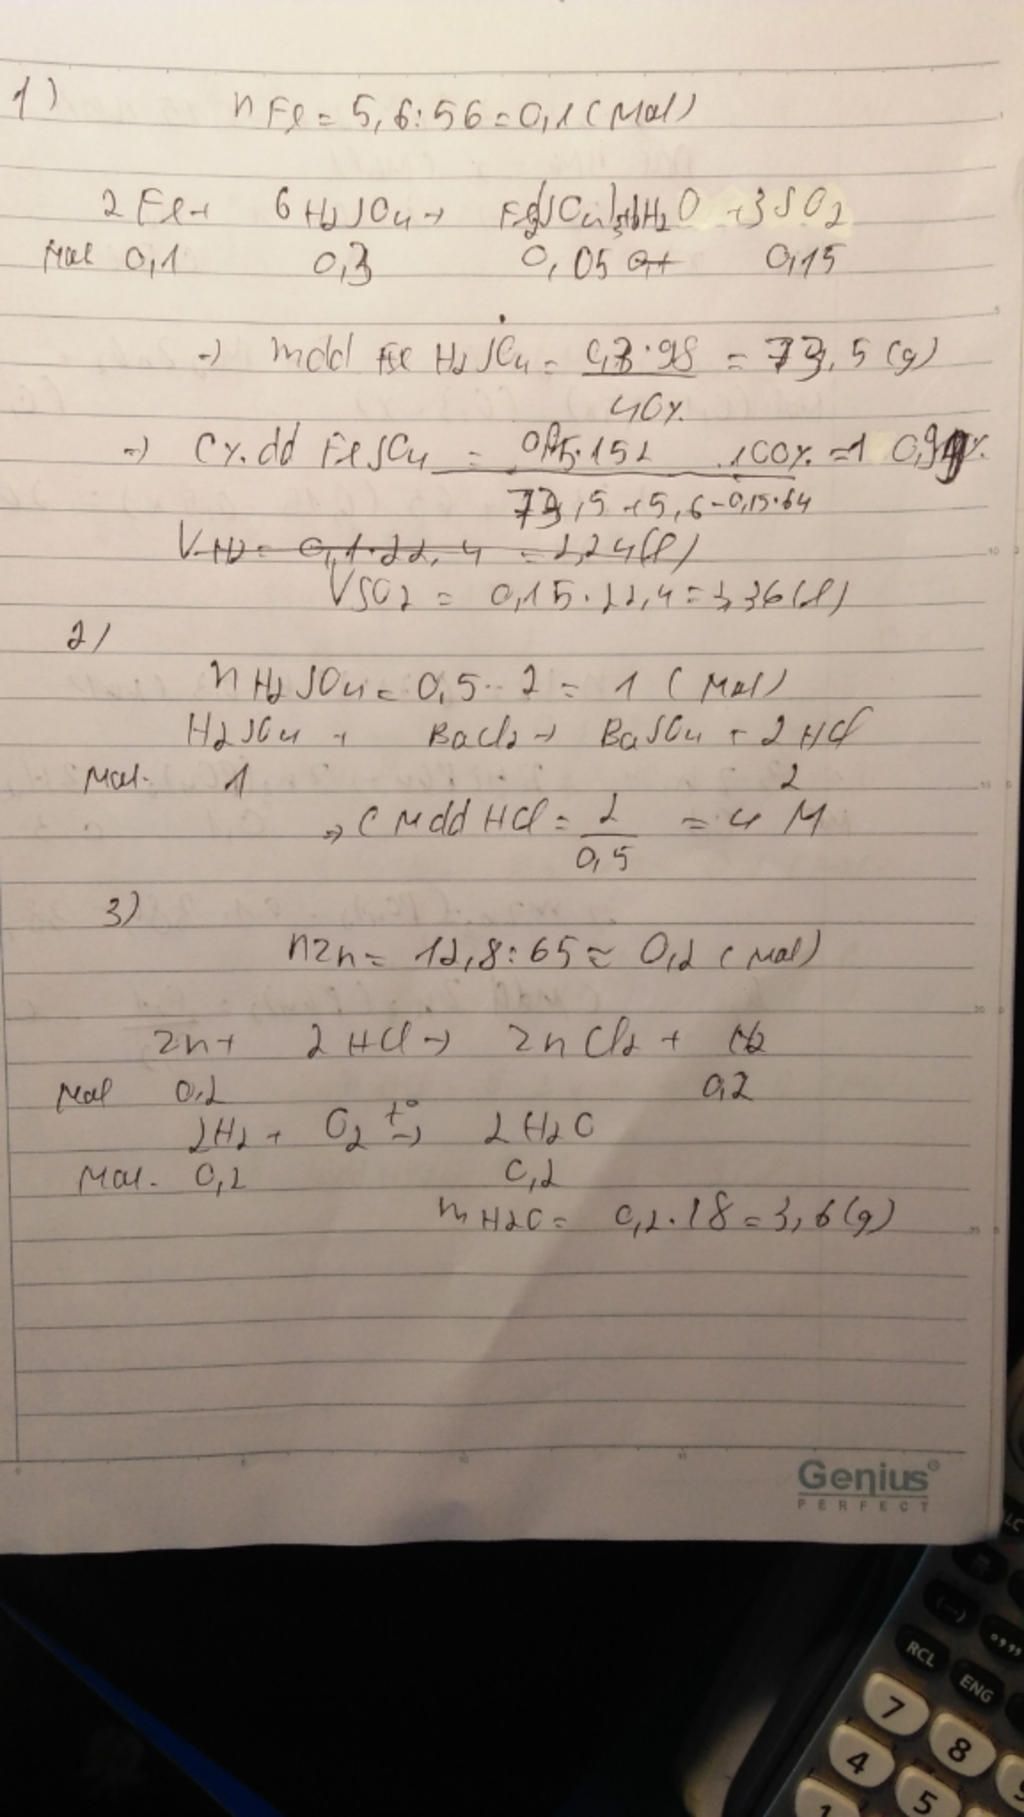 1)
nFe = 5,6:56 = 0,1 (mol)
2Fe + 6H2SO4 → Fe2(SO4)3 + 6H2O + 3SO2
Mol 0,1 0,3 0,05 0,15
→ mdd H2SO4 = 0,3.98 = 73,5 (g)
40%
→ C%dd FeSO4 = .152 .100% = 10,
73,5 + 5,6 - 0,15.64
VH2 = 0,1.22,4 = 2,24(l)
VSO2 = 0,15.22,4 = 3,36(l)
2)
nH2SO4 = 0,5.2 = 1 (mol)
H2SO4 + BaCl2 → BaSO4 + 2HCl
Mol. 1 2
→ CMdd HCl = 2 = 4 M
0,5
3)
nZn = 12,8:65 ≈ 0,2 (mol)
Zn + 2HCl → ZnCl2 + H2
Mol 0,2 0,2
2H2 + O2 t° → 2H2O
Mol. 0,2 0,2
mH2O = 0,2.18 = 3,6(g)
Genius
PERFECT
RCL
ENG
7
8
4
5